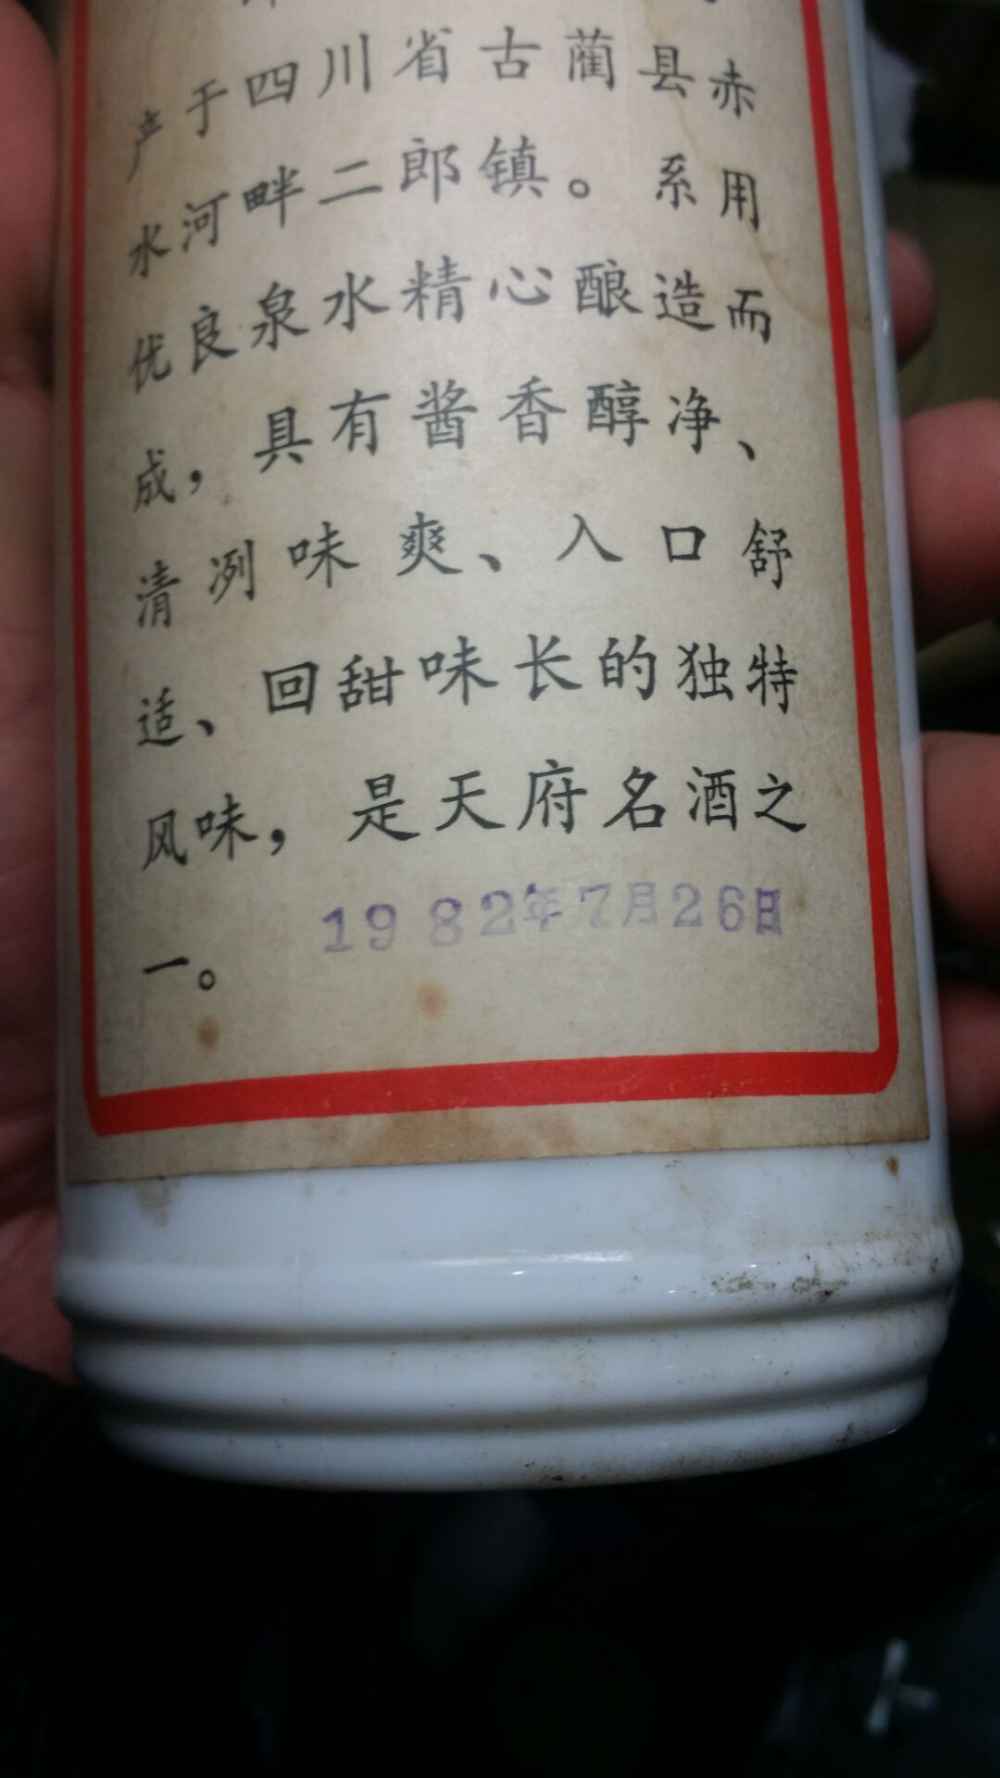 产于四川省古蔺县赤
水河畔二郎镇。系用
优良泉水精心酿造而
成，具有酱香醇净、
清冽味爽、入口舒
适、回甜味长的独特
风味，是天府名酒之
一。 1982年7月26日